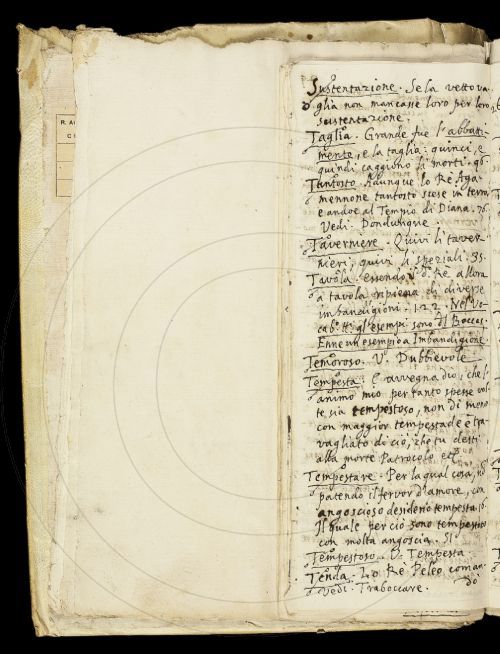 R. A
C
Sustentazione. Se la vettova
glia non mancasse loro per loro
sustentazione.
Taglia. Grande fue l'abbatti
mento, e la taglia: quinci, e
quindi caggiono li morti. 96.
Tantosto. Adunque lo Re Aga
mennone tantosto scese in terra,
e andoe al Tempio di Diana. 76
Vedi. Dondunque.
Taverniere. Quivi li taver
nieri, quivi li speziali. 35.
Tavola. Essendo lo Re allora
a tavola ripiena di diverse
imbandigioni. 122. Nel Vo
cab. gl'esempi sono di Boccac.
Enne un esempio a Imbandigione
Temoroso. V. Dubbievole
Tempesta. E avvegna dio, che l'
animo mio per tanto spesse vol
te sia tempestoso, non di meno
con maggior tempestade è tra
vagliato di ciò, che tu desti
alla morte Patrocolo
Tempestare. Per la qual cosa, no
patendo il fervor d'amore, con
angoscioso desiderio tempesta
Il quale perciò sono tempestoso
con molta angoscia. 51
Tempestoso. V. Tempesta
Tenda. Lo Re Peleo coman
dò
Vedi. Traboccare.